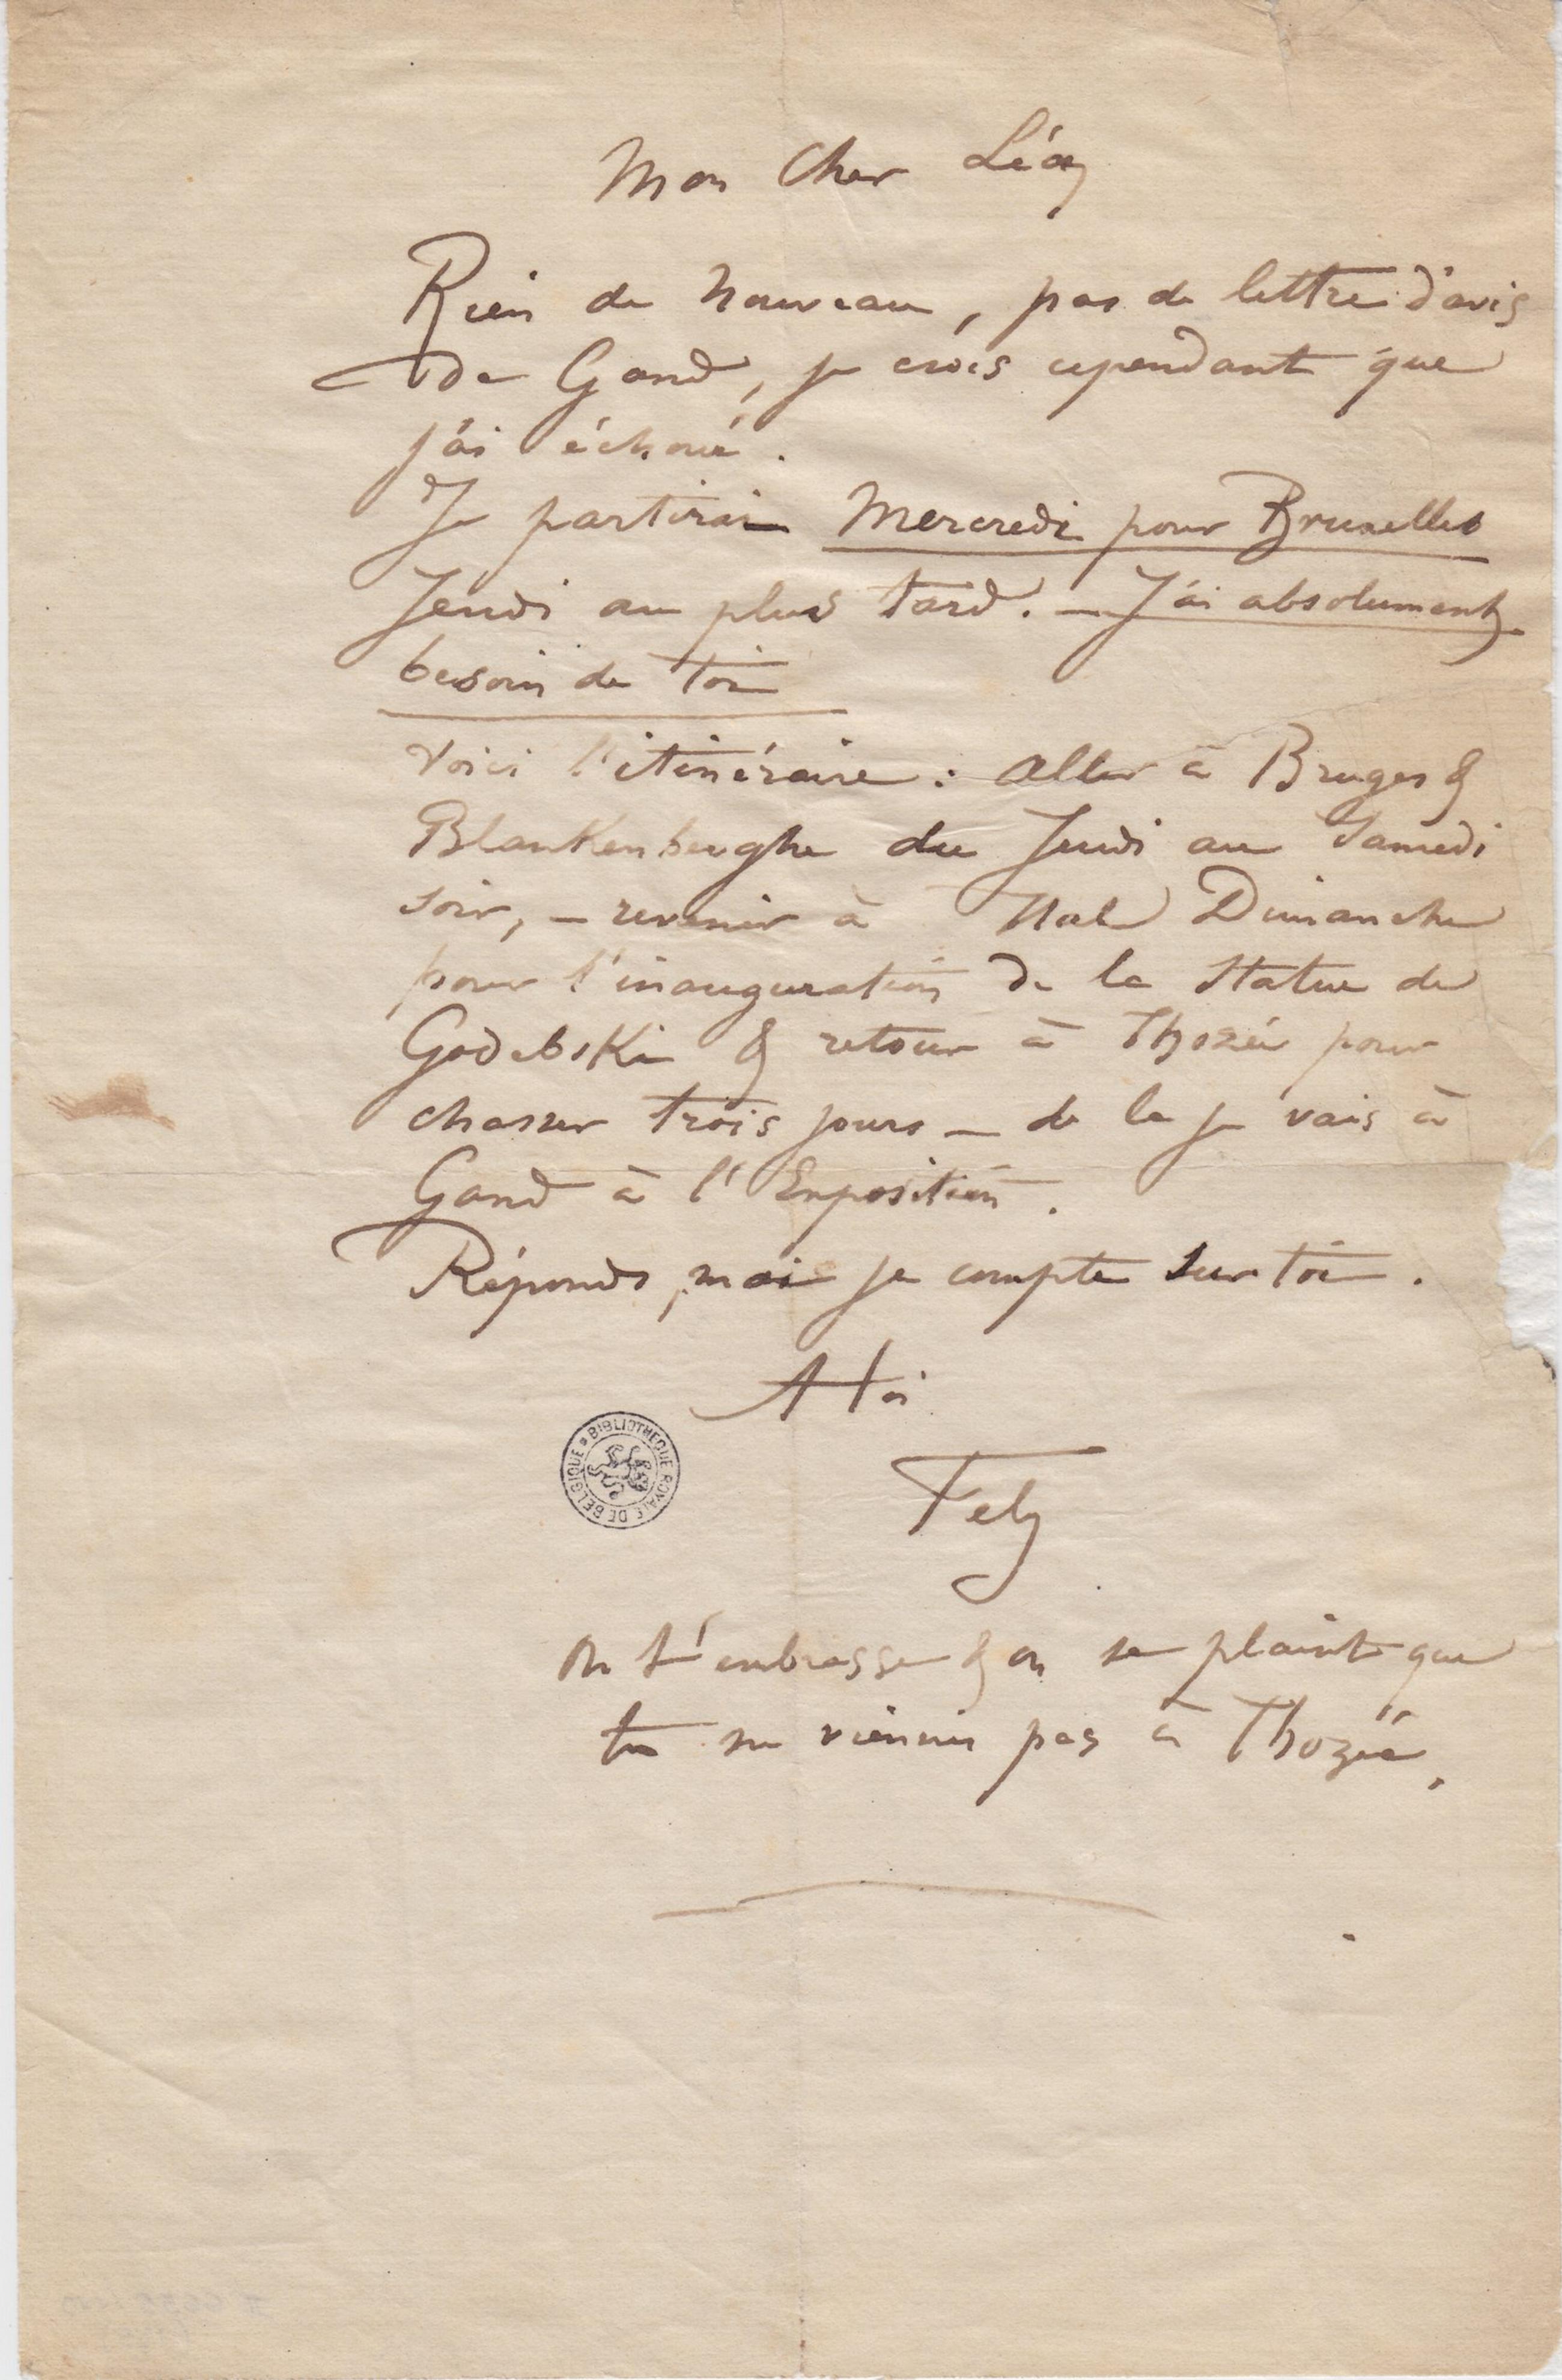 Mon Cher Léon
Rien de Nouveau, pas de lettre d'avis
de Gand, je crois cependant que
j'ai échoué.
Je partirai Mercredi pour Bruxelles
Jeudi au plus tard. – J'ai absolument
besoin de toi
Voici l'itinéraire : aller à Bruges &
Blankenberghe du Jeudi au Samedi
soir, – revenir à Hal Dimanche
pour l'inauguration de la Statue de
Godebski & retour à Thozée pour
chasser trois jours – de la je vais à
Gand à l'Exposition.
Réponds, moi je compte sur toi.
A toi
Fely
On t'embrasse & on se plaint que
tu ne viennes pas à Thozée.
BIBLIOTHEQUE ROYALE DE BELGIQUE